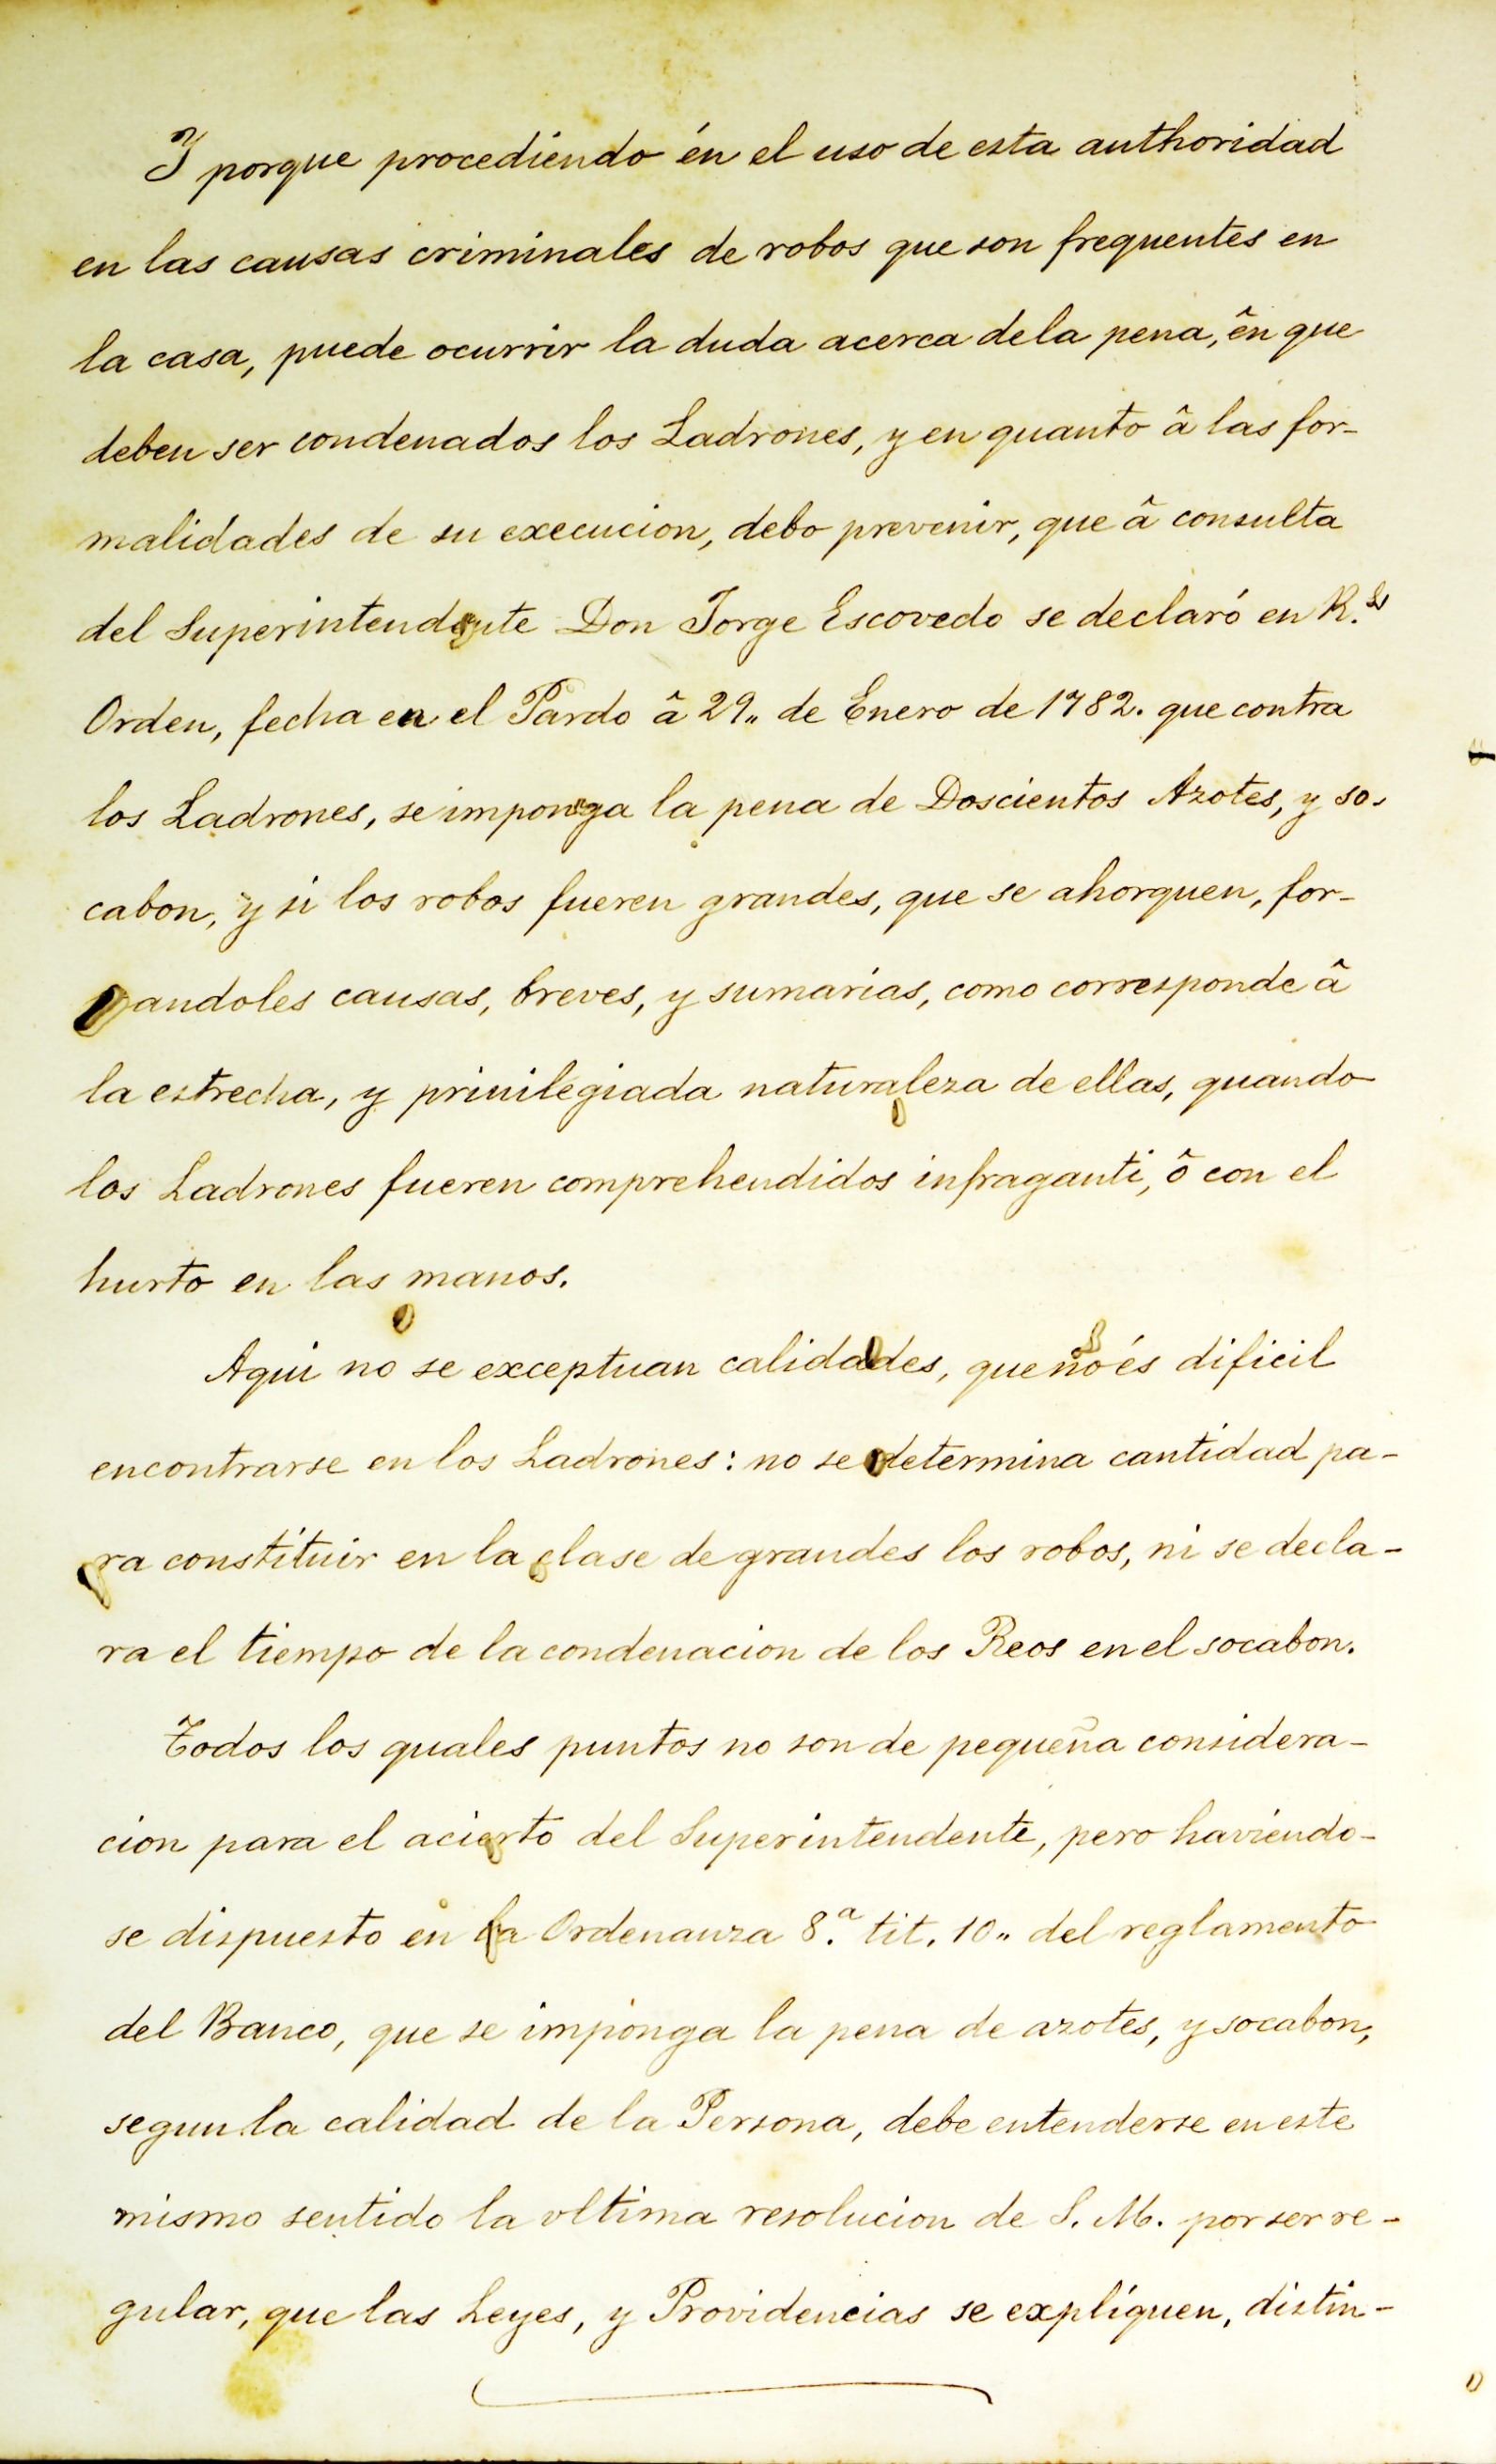 Y porque procediendo én el uso de esta authoridad
en las causas criminales de robos que son frequentes en
la casa, puede ocurrir la duda acerca dela pena, ên que
deben ser condenados los Ladrones, y en quanto â las for-
malidades de su execucion, debo prevenir, que â consulta
del Superintendente Don Jorge Escovedo se declaró en R.ˢ
Orden, fecha en el Pardo â 29,, de Enero de 1782. que contra
los Ladrones, se imponga la pena de Doscientos Azotes, y so-
cabon, y si los robos fueren grandes, que se ahorquen, for-
mandoles causas, breves, y sumarias, como corresponde â
la estrecha, y privilegiada naturaleza de ellas, quando
los Ladrones fueren comprehendidos infraganti, ô con el
hurto en las manos.
Aqui no se exceptuan calidades, que no és dificil
encontrarse en los Ladrones: no se determina cantidad pa-
ra constituir en la clase de grandes los robos, ni se decla-
ra el tiempo de la condenacion de los Reos en el socabon.
Todos los quales puntos no son de pequeña considera-
cion para el acierto del Superintendente, pero haviendo-
se dispuesto en la Ordenanza 8.ª tit. 10,, del reglamento
del Banco, que se imponga la pena de azotes, y socabon,
segun la calidad de la Persona, debe entenderse en este
mismo sentido la vltima resolucion de S. M. por ser re-
gular, que las Leyes, y Providencias se expliquen, distin-